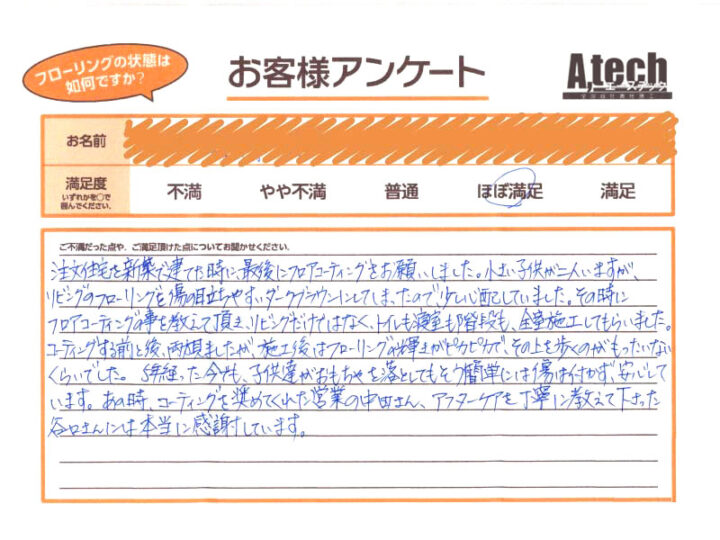 フローリングの状態は
如何ですか?
お客様アンケート
A.tech
エーステック
お名前
満足度
いずれかを○で
囲んでください。
不満 やや不満 普通 ほぼ満足 満足
ご不満だった点や、ご満足頂けた点についてお聞かせください。
注文住宅を新築で建てた時に、最後にフロアコーティングをお願いしました。小さい子供が二人いますが、
リビングのフローリングを傷の目立ちやすいダークブラウンにしてしまったので、少し心配していました。その時に
フロアコーティングの事を教えて頂き、リビングだけではなく、トイレも寝室も階段も、全室施工してもらいました。
コーティングする前と後、両方見ましたが、施工後はフローリングの輝きがピカピカで、その上を歩くのがもったいない
くらいでした。5年経った今でも、子供達がおもちゃを落としてもそう簡単には傷は付かず、安心して
います。あの時、コーティングを奨めてくれた営業の中田さん、アフターケアを丁寧に教えて下さった
谷口さんには本当に感謝しています。